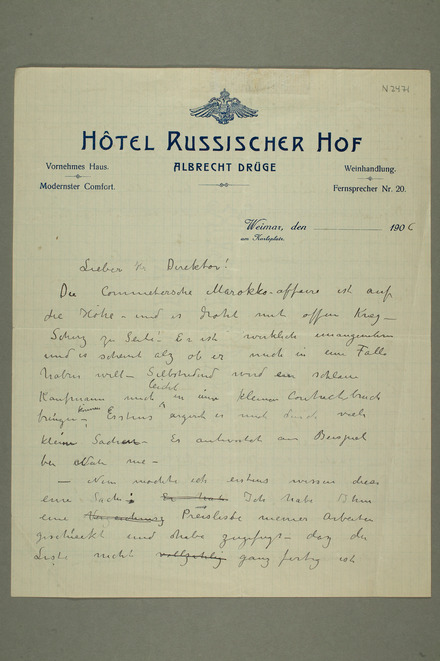 N 2471
HÔTEL RUSSISCHER HOF
ALBRECHT DRÜGE
Vornehmes Haus.
Modernster Comfort.
Weinhandlung.
Fernsprecher Nr. 20.
Weimar, den 1906
am Karlsplatz.
Lieber Hr Direktor!
Die Commetersche Marokko-affaire ist auf
die Höhe – und es droht mit offen Krieg –
Scherz zu Seite! Es ist wirklich unangenehm
und es scheint alz ob er mich in eine Falle
haben will – Selbstredend wird ein schlau
Kaufmann mich leicht in eine kleinen Contractbruch
bringen können – Erstens ärgert es mich durch viele
kleine Sachen – Er antwortet zum Beispiel
bei nie –
– Nun möchte ich erstens wissen diese
eine Sache: Ich habe Ihm
eine Preisliste meiner Arbeiten
geschickt und habe zugefügt – daz die
Liste nicht vollzählig ganz fertig ist